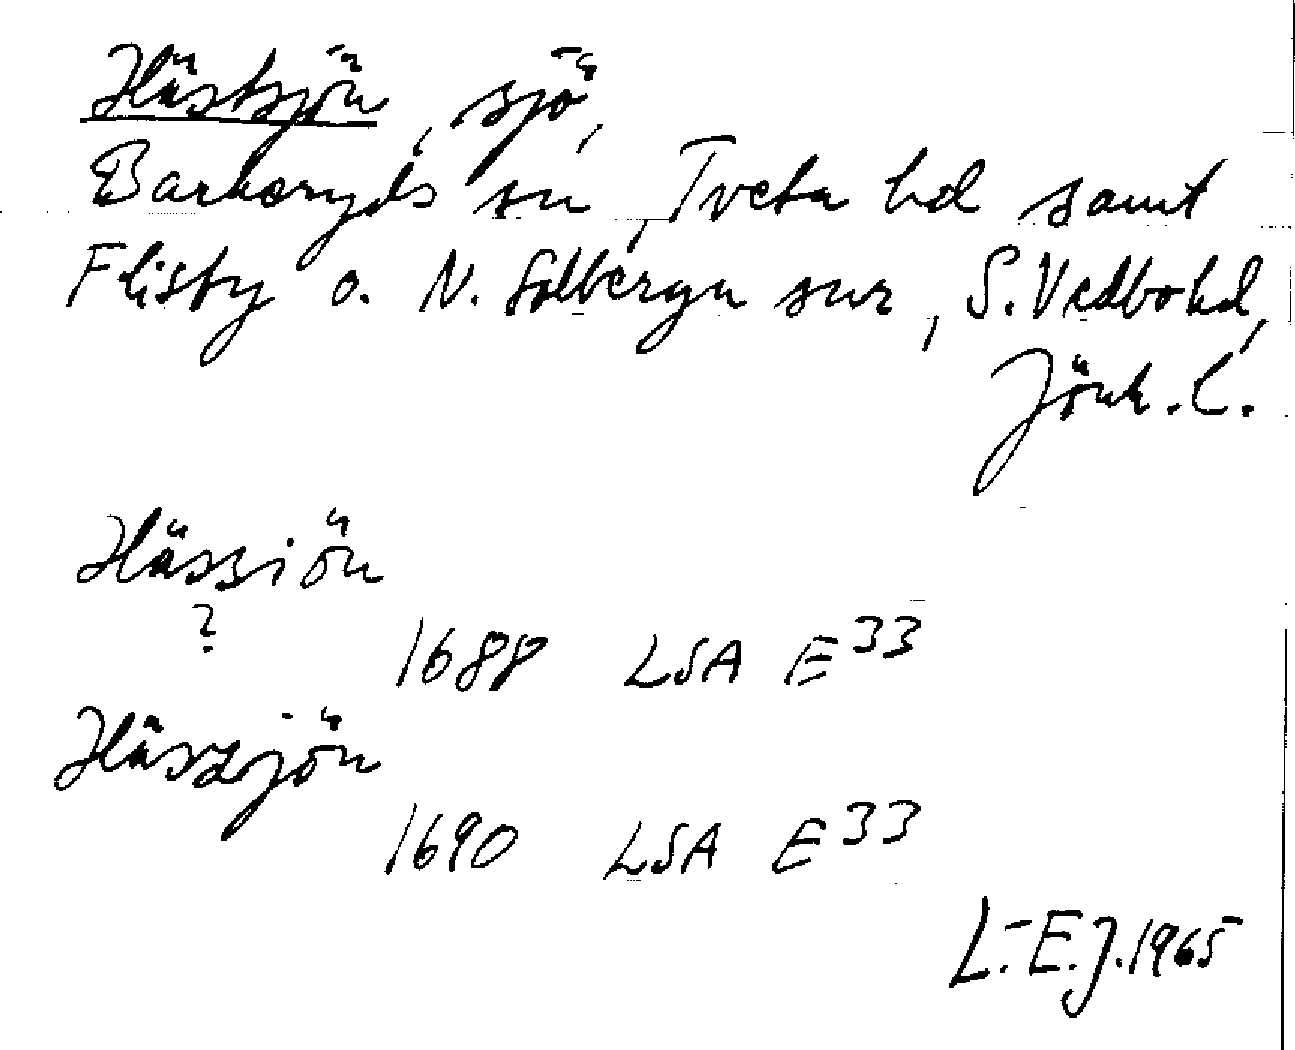 Hästsjön, sjö,
Barkeryds sn, Tveta hd samt
Flisby o. N. Solberga snr, S. Vedbo hd,
Jönk. l.
Hässiön
?
1688 LSA E33
Hässjön
1690 LSA E33
L.-E.J. 1965